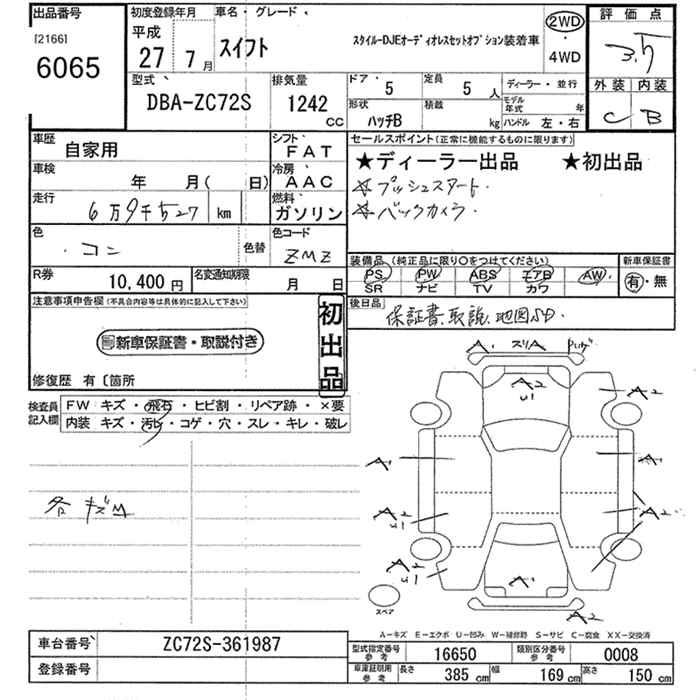 出品番号
[2166]
6065
初度登録年月
平成
27年7月
車名・グレード
スイフト
スタイル-DJEオーディオレスセットオプション装着車
2WD
・
4WD
評価点
3.5
外装 内装
C B
型式
DBA-ZC72S
排気量
1242
CC
ドア
5
定員
5人
ディーラー・並行
形状
ハッチB
積載
kg
モデル年式
年
ハンドル 左・右
車歴
自家用
シフト
FAT
車検
年 月( 日)
冷房
AAC
走行
6万9千527 km
燃料
ガソリン
色
コン
色替
色コード
ZMZ
R券
10,400円
名変通知期限
月 日
セールスポイント(正常に機能するものに限ります)
★ディーラー出品 ★初出品
☆プッシュスタート・
☆バックカメラ・
装備品(純正品に限り〇をつけてください)
PS PW ABS エアB AW
SR ナビ TV カワ
新車保証書
有・無
後日品
保証書、取説、地図SD・
注意事項申告欄(不具合内容等は具体的に記入して下さい)
新車保証書・取説付き
初出品
修復歴 有〔箇所
検査員
記入欄
FW キズ・飛石・ヒビ割・リペア跡・×要
内装 キズ・汚レ・コゲ・穴・スレ・キレ・破レ
各キズM
A1 スリA
A2
U1
A2
A1
A1
A2
U1
A2
A2
U1
A1
スペア
A2
A-キズ E-エクボ U-凹み W-補修跡 S-サビ C-腐食 XX-交換済
車台番号
ZC72S-361987
登録番号
型式指定番号
参考
16650
類別区分番号
参考
0008
車庫証明用
参考
長さ 385 cm 幅 169 cm 高さ 150 cm